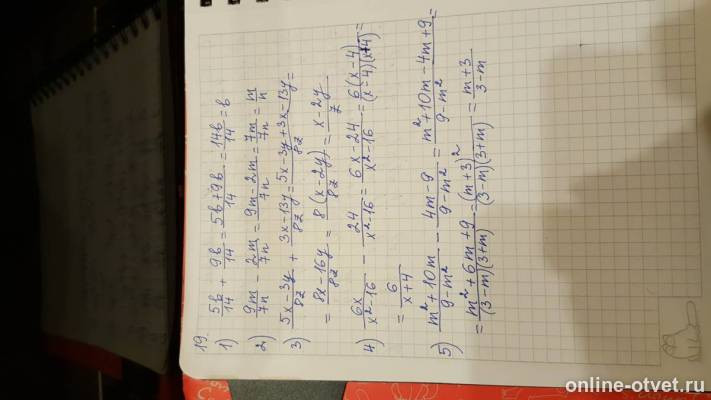 19.
1) 5b/14 + 9b/14 = 5b+9b/14 = 14b/14 = b
2) 9m/7n - 2m/7n = 9m-2m/7n = 7m/7n = m/n
3) 5x-3y/8z + 3x-13y/8z = 5x-3y+3x-13y/8z =
= 8x-16y/8z = 8(x-2y)/8z = x-2y/z
4) 6x/x²-16 - 24/x²-16 = 6x-24/x²-16 = 6(x-4)/(x-4)(x+4) =
= 6/x+4
5) m²+10m/9-m² - 4m-9/9-m² = m²+10m-4m+9/9-m² =
= m²+6m+9/(3-m)(3+m) = (m+3)²/(3-m)(3+m) = m+3/3-m
online-otvet.ru